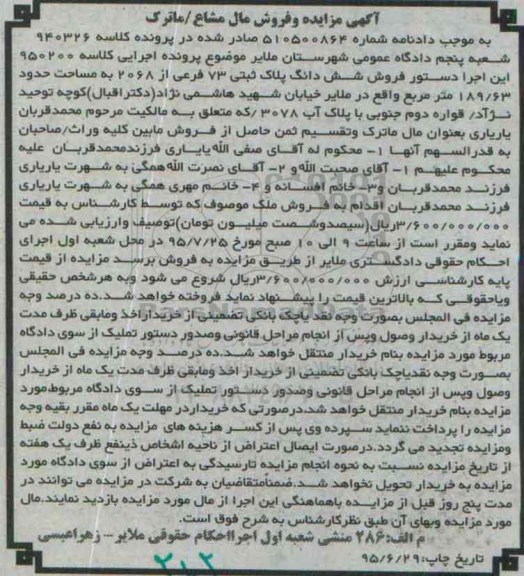 آگهی مزایده وفروش مال مشاع/ماترک
به موجب دادنامه شماره ۵۱۰۵۰۰۸۶۴ صادر شده در پرونده کلاسه ۹۴۰۳۲۶
شعبه پنجم دادگاه عمومی شهرستان ملایر موضوع پرونده اجرایی کلاسه ۹۵۰۲۰۰
این اجرا دستور فروش شش دانگ پلاک ثبتی ۷۳ فرعی از ۲۰۶۸ به مساحت حدود
۱۸۹/۶۳ متر مربع واقع در ملایر خیابان شهید هاشمی نژاد(دکتراقبال)کوچه توحید
نژاد/ قواره دوم جنوبی با پلاک آب ۳۰۷۸/که متعلق به مالکیت مرحوم محمدقربان
یاریاری بعنوان مال ماترک وتقسیم ثمن حاصل از فروش مابین کلیه وراث/صاحبان
به قدرالسهم آنها ۱- محکوم له آقای صفی الله یاریاری فرزندمحمدقربان علیه
محکوم علیهم ۱- آقای صحبت الله و ۲- آقای نصرت الله همگی به شهرت یاریاری
فرزند محمدقربان و۳-خانم افسانه و ۴- خانم مهری همگی به شهرت یاریاری
فرزند محمدقربان اقدام به فروش ملک موصوف که توسط کارشناس به قیمت
۳/۶۰۰/۰۰۰/۰۰۰ریال(سیصدوشصت میلیون تومان)توصیف وارزیابی شده می
نماید ومقرر است از ساعت ۹ الی ۱۰ صبح مورخ ۹۵/۷/۲۵ در محل شعبه اول اجرای
احکام حقوقی دادگستری ملایر از طریق مزایده به فروش برسد مزایده از قیمت
پایه کارشناسی ارزش ۳/۶۰۰/۰۰۰/۰۰۰ریال شروع می شود وبه هرشخص حقیقی
ویاحقوقی که بالاترین قیمت را پیشنهاد نماید فروخته خواهد شد.ده درصد وجه
مزایده فی المجلس بصورت وجه نقد یاچک بانکی تضمینی از خریداراخذ ومابقی ظرف مدت
یک ماه از خریدار وصول وپس از انجام مراحل قانونی وصدور دستور تملیک از سوی دادگاه
مربوط مورد مزایده بنام خریدار منتقل خواهد شد.ده درصد وجه مزایده فی المجلس
بصورت وجه نقدیاچک بانکی تضمینی از خریدار اخذ ومابقی ظرف مدت یک ماه از خریدار
وصول وپس از انجام مراحل قانونی وصدور دستور تملیک از سوی دادگاه مربوط.مورد
مزایده بنام خریدار منتقل خواهد شد.درصورتی که خریداردر مهلت یک ماه مقرر بقیه وجه
مزایده را پرداخت ننماید سپرده وی پس از کسر هزینه های مزایده به نفع دولت ضبط
ومزایده تجدید می گردد.درصورت ایصال اعتراض از ناحیه اشخاص ذینفع ظرف یک هفته
از تاریخ مزایده نسبت به نحوه انجام مزایده تارسیدگی به اعتراض از سوی دادگاه مورد
مزایده به خریدار تحویل نخواهد شد.ضمنامتقاضیان به شرکت در مزایده می توانند در
مدت پنج روز قبل از مزایده باهماهنگی این اجرا از مال مورد مزایده بازدید نمایند.مال
مورد مزایده وبهای آن طبق نظرکارشناس به شرح فوق است.
م الف:۲۸۶ منشی شعبه اول اجرااحکام حقوقی ملایر-- زهراعبسی
تاریخ چاپ:۹۵/۶/۲۹